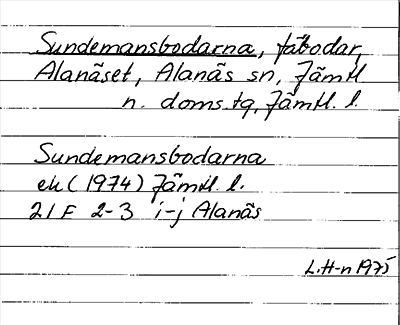 Sundemansbodarna, fäbodar,
Alanäset, Alanäs sn, Jämtl
n. doms.tg, Jämtl. l.
Sundemansbodarna
ek (1974) Jämtl. l.
21F 2-3 i-j Alanäs
L.H-n 1975